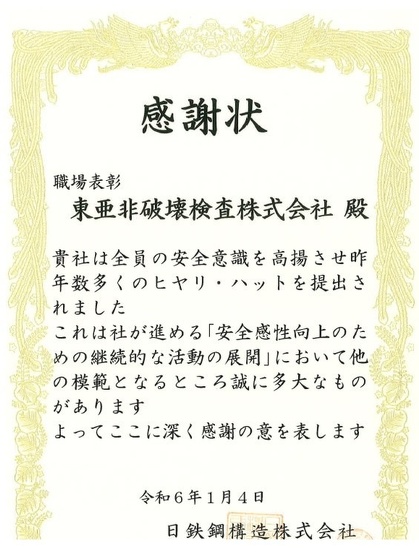 感謝状
職場表彰
東亜非破壊検査株式会社 殿
貴社は全員の安全意識を高揚させ昨
年数多くのヒヤリ・ハットを提出さ
れました
これは社が進める「安全感性向上のた
めの継続的な活動の展開」において他
の模範となるところ誠に多大なもの
があります
よってここに深く感謝の意を表します
令和6年1月4日
日鉄鋼構造株式会社